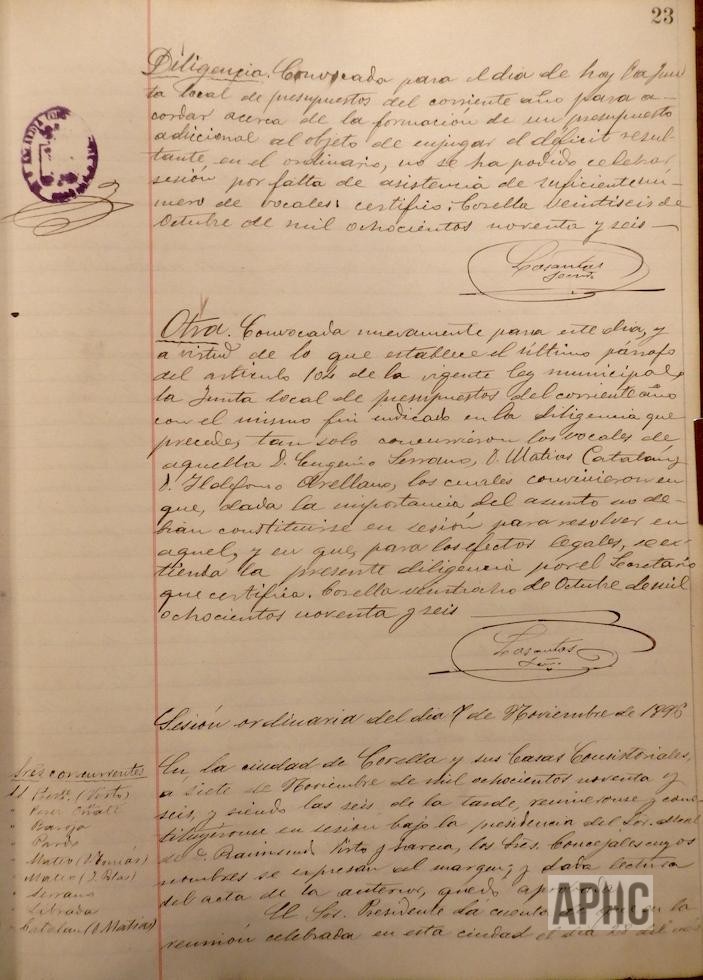 23
Diligencia. Convocada para el dia de hoy la Jun
ta local de presupuestos del corriente año para a-
cordar acerca de la formacion de un presupuesto
adicional al objeto de enjugar el déficit resul-
tante en el ordinario, no se ha podido celebrar
sesión por falta de asistencia de suficiente nú-
mero de vocales: certifico. Corella veintiseis de
Octubre de mil ochocientos noventa y seis
Losantos
Otra. Convocada nuevamente para este dia, y
a virtud de lo que establece el último párrafo
del articulo 104 de la vigente ley municipal,
la Junta local de presupuestos del corriente año
con el mismo fin indicado en la diligencia que
precede, tan solo concurrieron los vocales de
aquella D. Eugenio Serrano, D. Matias Catalan y
D. Ildefonso Arellano, los cuales convinieron en
que, dada la importancia del asunto no de-
bian constituirse en sesión para resolver en
aquel, y en que, para los efectos legales, se ex-
tienda la presente diligencia por el Secretario
que certifica. Corella veintiocho de Octubre de mil
ochocientos noventa y seis
Losantos
Sesión ordinaria del dia 7 de Noviembre de 1896
Sres concurrentes
Pres.te (Virto)
Perez Oñate
Baroja
Pardo
Mateo (D. Tomás)
Mateo (D. Blas)
Serrano
Librada
Catalan (D. Matias)
En la ciudad de Corella y sus Casas Consistoriales,
a siete de Noviembre de mil ochocientos noventa y
seis, y siendo las seis de la tarde, reunieronse y cons-
tituyeronse en sesión bajo la presidencia del Sor. Alcal
de D. Raimundo Virto y Garcia, los Sres. Concejales cuyos
nombres se expresan al margen; y dada lectura
del acta de la anterior, quedó aprobada.
El Sor. Presidente dá cuenta de que en la
reunión celebrada en esta ciudad el dia 28 del mes
APHC